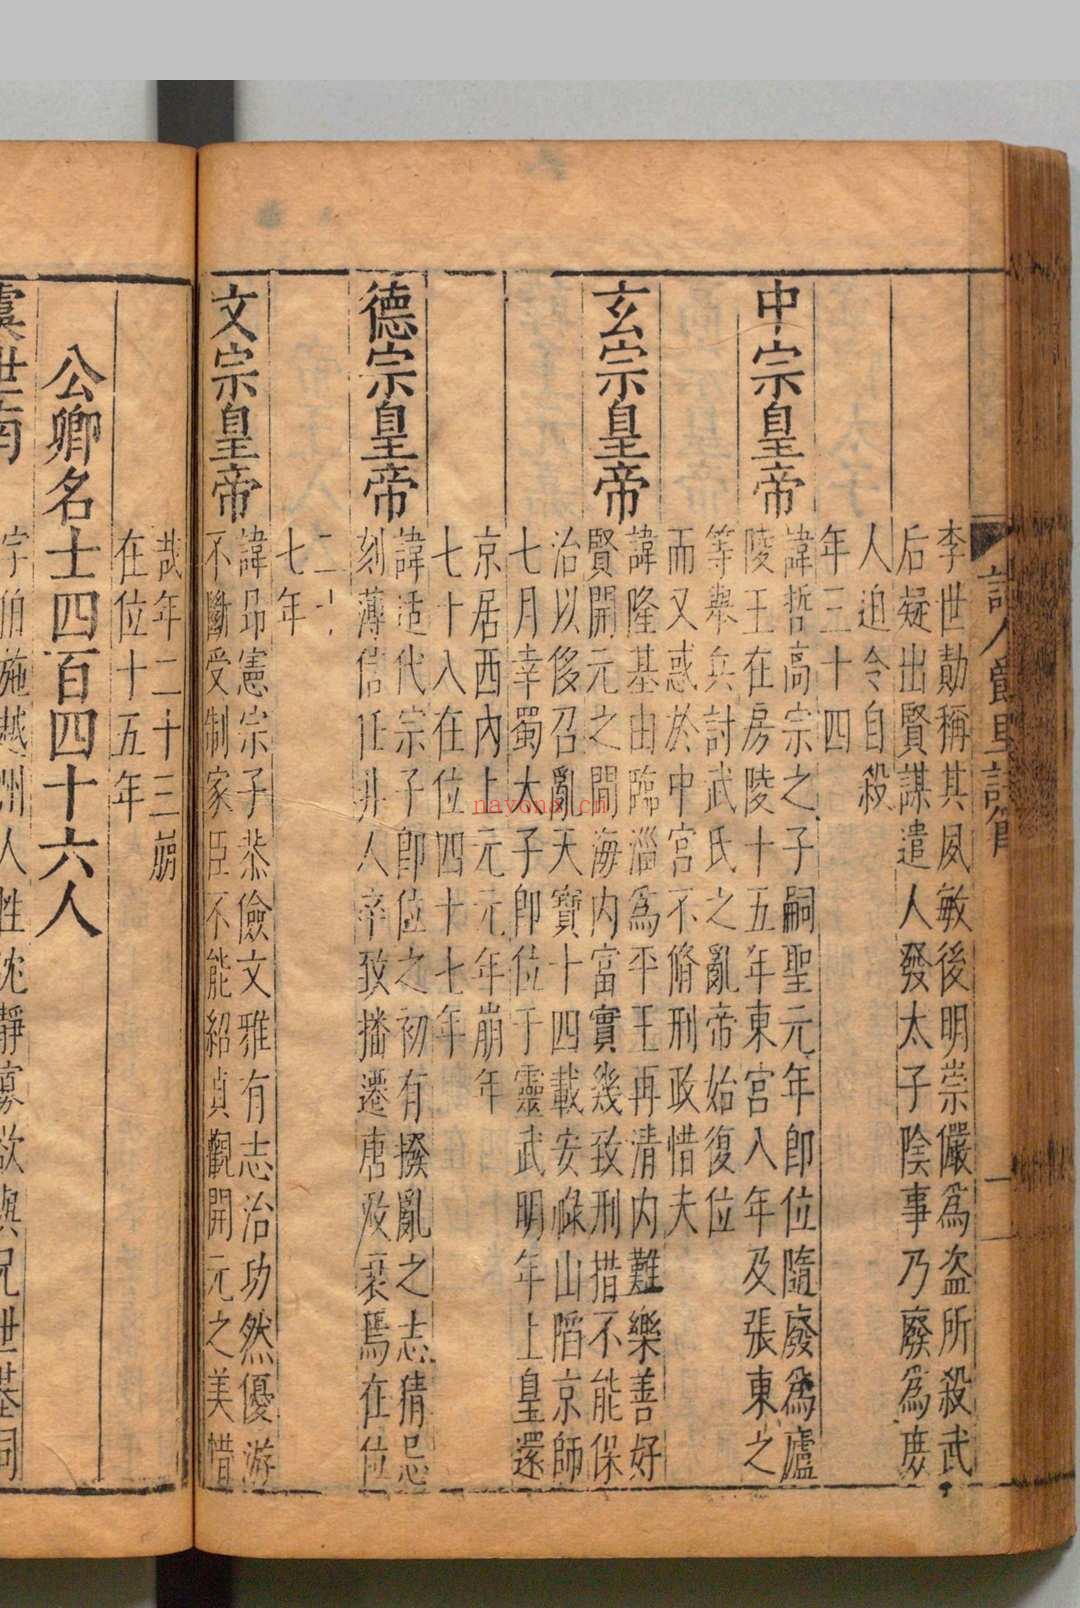 李世勣稱其夙敏後明崇儼爲盜所殺武
后疑出賢謀遣人發太子陰事乃廢爲庶
人迫令自殺
年三十四
中宗皇帝
諱哲高宗之子嗣聖元年即位隨廢爲廬
陵王在房陵十五年東宮八年及張東之
等舉兵討武氏之亂帝始復位
而又惑於中宮不脩刑政惜夫
玄宗皇帝
諱隆基由臨淄爲平王再清内難樂善好
賢開元之間海内富實幾致刑措不能保
治以侈召亂天寶十四載安祿山陷京師
七月幸蜀太子即位于靈武明年上皇還
京居西內上元元年崩年
七十八在位四十七年
德宗皇帝
諱适代宗子即位之初有撥亂之志猜忌
刻薄信任非人卒致播遷唐政衰焉在位
二十
七年
文宗皇帝
諱昂憲宗子恭儉文雅有志治功然優游
不斷受制家臣不能紹貞觀開元之美惜
哉年二十三崩
在位十五年
公卿名士四百四十六人
虞世南
字伯施越州人性沈靜寡欲與兄世基同
navona.cn